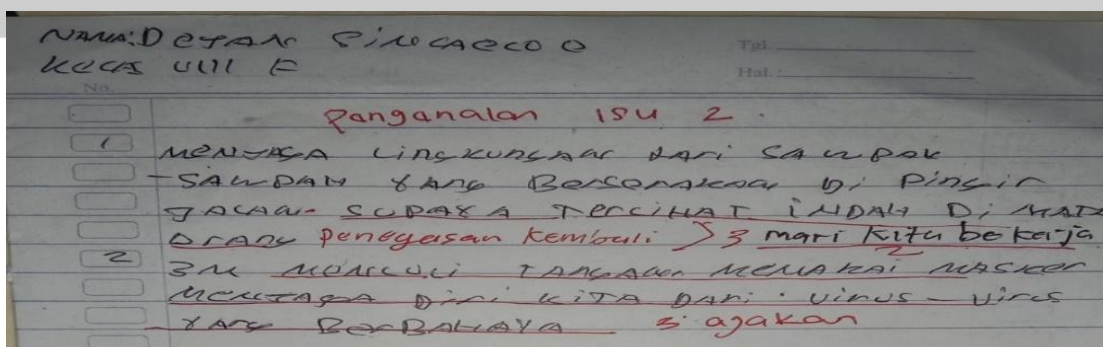 NAMA: DEYAN
KELAS VIII E
Tgl.
Hal.
No.
Panganalan ISU 2.
1 MENJAGA LINGKUNGAN DARI SAMPAH
- SAMPAH YANG BERSERAKAN DI PINGIR
JALAN - SUPAYA TERLIHAT INDAH DI MATA
ORANG Penegasan Kembali > 3 mari kita bekerja
2
2 3M MONCUCI TANGAGAN MEMAKAI MASKER
MENJAGA DIRI KITA DARI VIRUS - VIRUS
YANG BERBAHAYA 3 ajakan